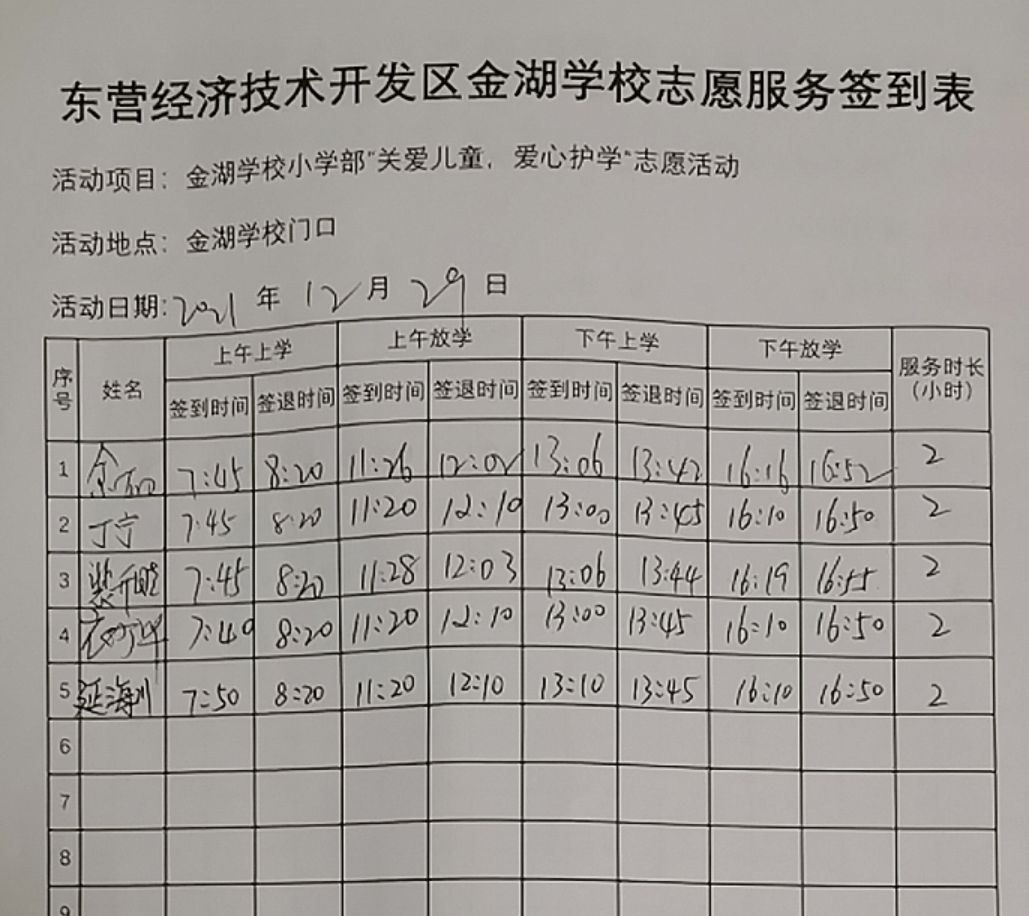 东营经济技术开发区金湖学校志愿服务签到表
活动项目：金湖学校小学部“关爱儿童，爱心护学”志愿活动
活动地点：金湖学校门口
活动日期：2021 年 12 月 29 日
序号 姓名 上午上学 上午放学 下午上学 下午放学 服务时长（小时）
签到时间 签退时间 签到时间 签退时间 签到时间 签退时间 签到时间 签退时间
1 7:45 8:20 11:26 12:02 13:06 13:42 16:16 16:52 2
2 丁宁 7:45 8:20 11:20 12:10 13:00 13:45 16:10 16:50 2
3 7:45 8:20 11:28 12:03 13:06 13:44 16:19 16:55 2
4 7:40 8:20 11:20 12:10 13:00 13:45 16:10 16:50 2
5 延海川 7:50 8:20 11:20 12:10 13:10 13:45 16:10 16:50 2
6
7
8
9